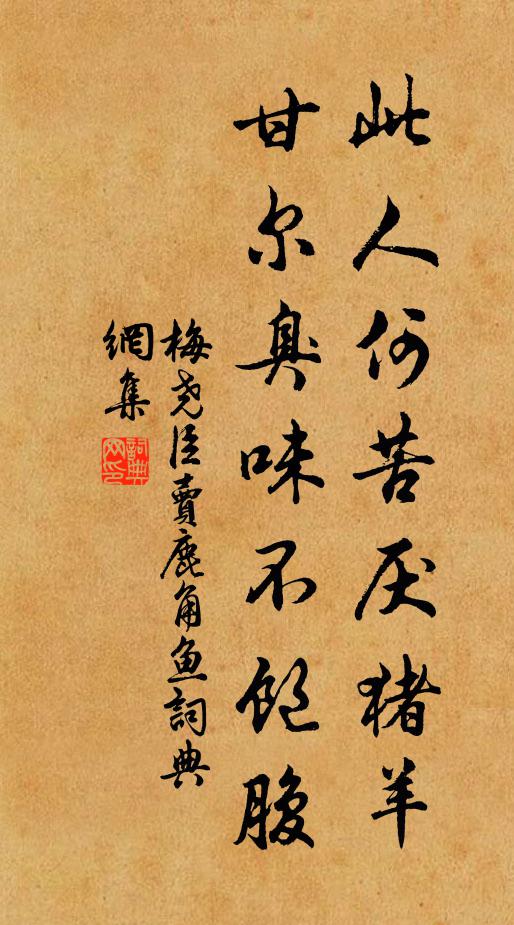 此人何苦厌猪羊
甘尔臭味不饱腹
梅尧臣賣鹿角鱼詞典
網集
詞典網印